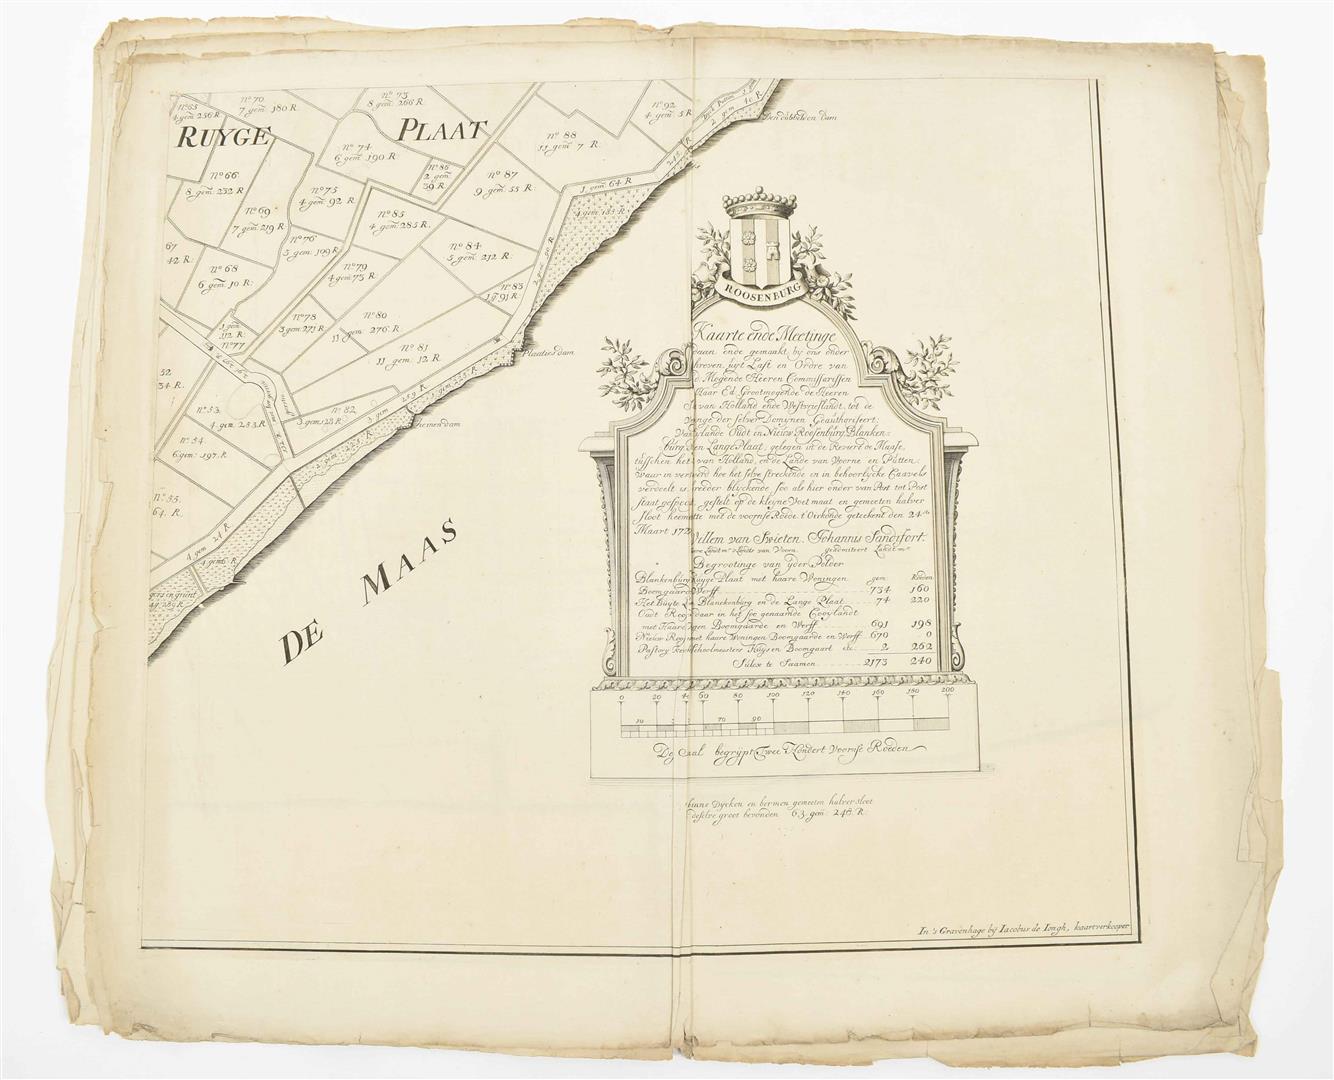 RUYGE PLAAT
No 65
4 gem 256 R.
No 70
7 gem 180 R
No 73
8 gem 266 R
No 92
4 gem 5 R
No 66
8 gem 232 R
No 74
6 gem 190 R.
No 86
2 gem
39 R
No 87
9 gem 55 R.
No 88
11 gem 7 R.
No 69
7 gem 219 R
No 75
4 gem 92 R
No 76
5 gem 199 R
No 85
4 gem 285 R.
No 84
5 gem 212 R.
No 83
1 g 91 R
67
42 R.
No 68
6 gem 10 R
No 79
4 gem 73 R
No 78
3 gem 273 R
No 80
11 gem 276 R
No 81
11 gem 12 R.
1 gem
112 R
No 77
52
34 R.
No 53
4 gem 253 R
No 54
6 gem 197 R.
No 55
64 R.
No 82
3 gem 123 R
1 gem 64 R
4 gem 185 R
3 gem 259 R
4 gem 24 R
Plaatjes dam
DE MAAS
ROOSENBURG
Kaarte ende Meetinge
daan ende gemaakt by ons onder
Last en Ordre van
Mogende Heeren Commissarissen
Haar Ed. Grootmogende de Heeren
van Holland ende Westvrieslandt, tot de
der selver Domynen Geauthoriseert,
Oudt en Nieuw Roosenburg Blanken=
burg en Lange Plaat, gelegen in de Reviere de Maase,
tusschen het van Holland, en de Lande van Voorne en Putten
waar in verwerd hoe het selve streckende en in behoorlycke Caavels
verdeelt is breeder blyckende, soo als hier onder van Post tot Post
staat gestelt op de kleyne Voet maat en gemeeten halver
sloot met de voornse Roede t'Oirkonde geteekent den 24
Maart 172
Willem van Swieten Johannis Sandifort
geadmiteert Landt
Begrootinge van yder Polder
gem Roeden
Blankenburg Ruyge Plaat met haare Woningen
Boomgaard Werff 734 160
Het Buyte Blanckenburg en de Lange Plaat 74 220
Oudt daar in het soo genaamde Cooylandt
met Haare Boomgaarde en Werff 691 198
Nieuw met haare Woningen Boomgaarde en Werff 670 0
Pastory Schoolmeesters Huys en Boomgaart etc. 2 262
Sulcx te Saamen 2173 240
0 20 40 60 80 100 120 140 160 180 200
10 70 90
begrypt Twee Hondert Voornse Roeden
binne Dycken en bermen gemeeten halver sloot
deselve groot bevonden 63 gem: 248 R.
In 's Gravenhage by Iacobus de Iongh, kaartverkooper